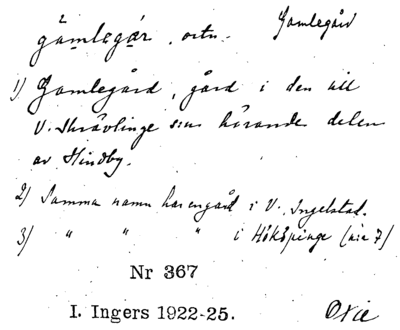 gämlegár, ortn. Gamlegård
1) Gamlegård, gård i den till
V. Skrävlinge sn hörande delen
av Hindby.
2) Samma namn har en gård i V. Ingelstad.
3) " " " i Hököpinge (nr 7)
Nr 367
I. Ingers 1922-25. Oxie